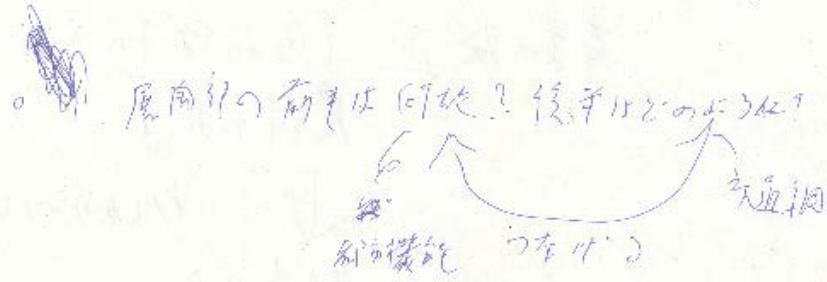 展開部の前半は何故?後半はどのように?
6
和声機能
つなげる